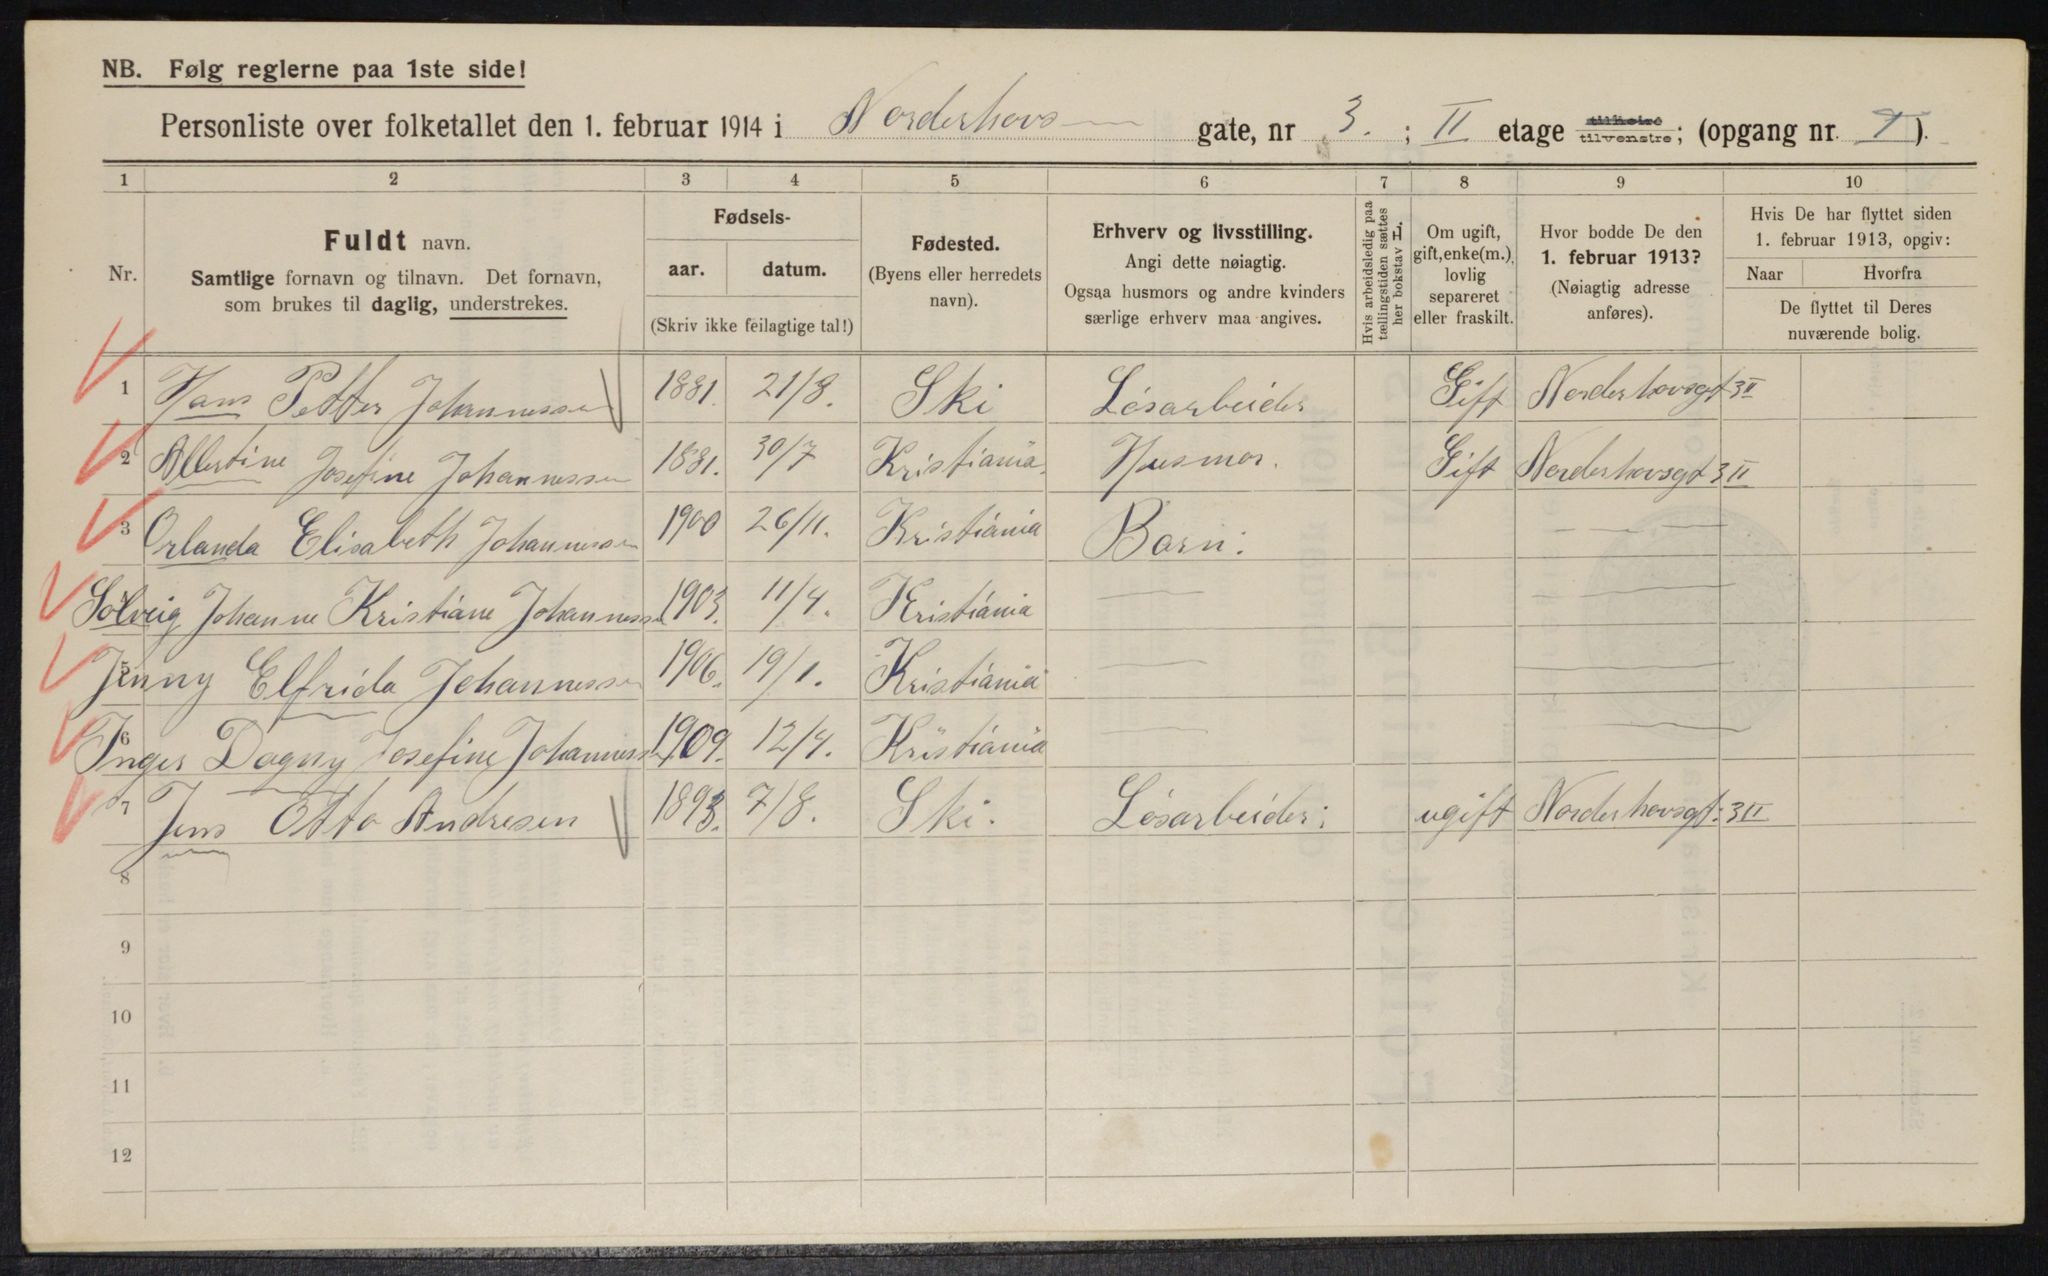 NB. Følg reglerne paa 1ste side!
Personliste over folketallet den 1. februar 1914 i Norderhovs gate, nr 3. ; II etage tilhøire tilvenstre; (opgang nr. 1).
1 2 3 4 5 6 7 8 9 10
Nr.
Fuldt navn.
Samtlige fornavn og tilnavn. Det fornavn,
som brukes til daglig, understrekes.
Fødsels-
aar. datum.
(Skriv ikke feilagtige tal!)
Fødested.
(Byens eller herredets
navn).
Erhverv og livsstilling.
Angi dette nøiagtig.
Ogsaa husmors og andre kvinders
særlige erhverv maa angives.
Hvis arbeidsledig paa
tællingstiden sættes
her bokstav L.
Om ugift,
gift, enke(m.),
lovlig
separeret
eller fraskilt.
Hvor bodde De den
1. februar 1913?
(Nøiagtig adresse
anføres).
Hvis De har flyttet siden
1. februar 1913, opgiv:
Naar Hvorfra
De flyttet til Deres
nuværende bolig.
1 Hans Petter Johannessen 1881. 21/8. Ski Lösarbeider Gift Norderhovsgt 3 II
2 Albertine Josefine Johannessen 1881. 30/7 Kristiania. Husmor. Gift Norderhovsgt 3 II
3 Orlanda Elisabeth Johannessen 1900 26/11. Kristiania Barn: — — —
Solveig Johanne Kristiane Johannesse 1903. 11/4. Kristiania — — — —
5 Jenny Elfrida Johannessen 1906. 19/1. Kristiania — — — —
6 Inger Dagny Josefine Johanness 1909. 12/4. Kristiania — — — —
7 Jens Otto Andresen 1893. 7/8. Ski. Lösarbeider; ugift Norderhovsgt: 3 II
8
9
10
11
12